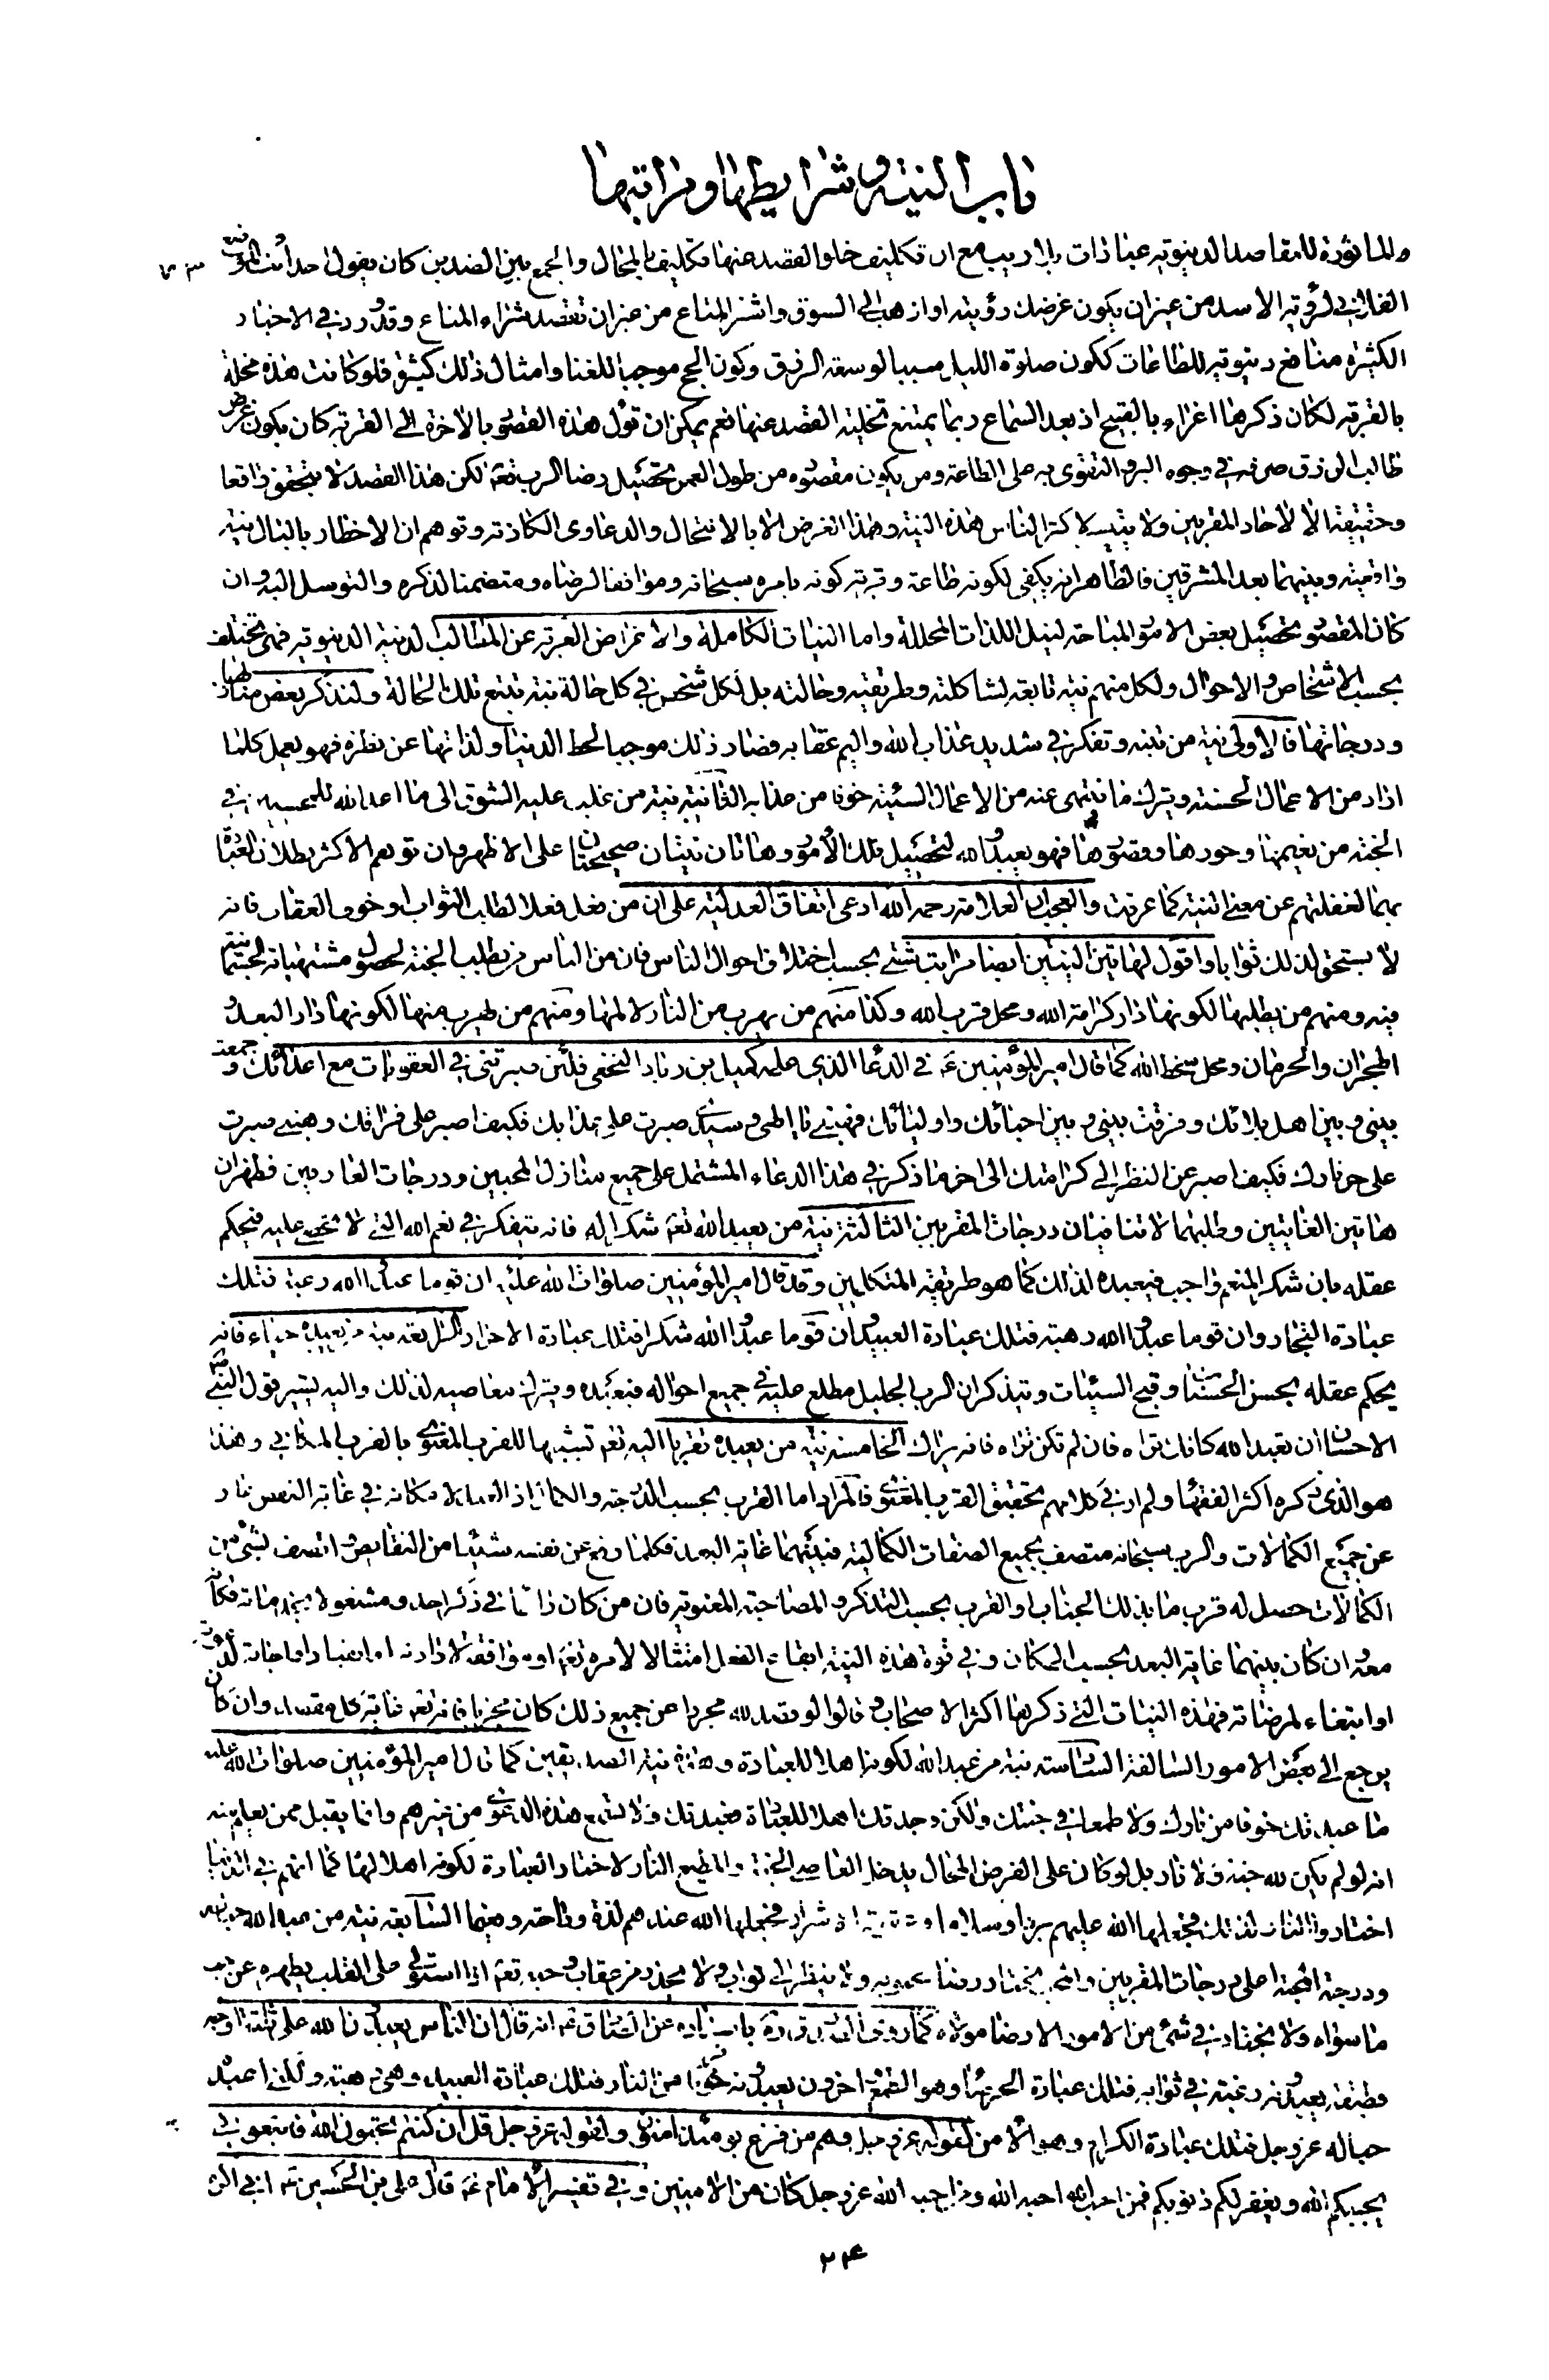 باب النية وشرايطها ومراتبها
والماثورة للمقاصد الدنيوية عبادات بلا ريب مع ان تكليف خلو القصد عنها تكليف بالمحال والجمع بين الضدين كان يقول احد ائت
الفلاني لرؤية الاسد من غير ان يكون غرضك رؤيته او اذهب الى السوق واشتر المتاع من غير ان تقصد شراء المتاع وقد ورد في الاخبار
الكثيرة منافع دنيوية للطاعات ككون صلوة الليل سببا لوسعة الرزق وكون الحج موجبا للغنا وامثال ذلك كثيرة فلو كانت هذه مخلة
بالقربة لكان ذكرها اغراء بالقبيح اذ بعد السماع ربما يمتنع تخلية القصد عنها نعم يمكن ان تؤل هذه القصود بالاخرة الى القربة كان يكون غرض
طالب الرزق صرفه في وجوه البر والتقوى به على الطاعة ومن يكون مقصوده من طول العمر تحصيل رضا الرب تعم لكن هذا القصد لا يتحقق واقعا
وحقيقة الا لاحاد المقربين ولا يتيسر لاكثر الناس هذه النية وهذا الغرض الا بالانتحال والدعاوى الكاذبة وتوهم ان الاخطار بالبال نية
واقعية وبينهما بعد المشرقين فالظاهر انه يكفي لكونه طاعة وقربة كونه بامره سبحانه وموافقا لرضاه ومتضمنا لذكره والتوسل اليه وان
كان المقصود تحصيل بعض الامور المباحة لنيل اللذات المحللة واما النيات الكاملة والاغراض العرية عن المطالب الدنية الدنيوية فهي تختلف
بحسب الاشخاص والاحوال ولكل منهم نية تابعة لشاكلته وطريقته وحالته بل لكل شخص في كل حالة نية تتبع تلك الحالة ولنذكر بعض منازلها
ودرجاتها فالاولى نية من تنبه وتفكر في شديد عذاب الله واليم عقابه فصار ذلك موجبا لحط الدنيا ولذاتها عن نظره فهو يعمل كلما
اراد من الاعمال الحسنة ويترك ما ينتهى عنه من الاعمال السيئة خوفا من عذابه الثانية نية من غلب عليه الشوق الى ما اعد الله للمحسنين في
الجنة من نعيمها وحورها وقصورها فهو يعبد الله لتحصيل تلك الامور وهاتان نيتان صحيحتان على الاظهر وان توهم الاكثر بطلان العبادة
بهما لغفلتهم عن معنى النية كما عرفت والعجب ان العلامة رحمه الله ادعى اتفاق العدلية على ان من فعل فعلا لطلب الثواب او خوف العقاب فانه
لا يستحق لذلك ثوابا واقول لهاتين النيتين ايضا مراتب شتى بحسب اختلاف احوال الناس فان من الناس من يطلب الجنة لحصول مشتهياته الجسمانية
فيه ومنهم من يطلبها لكونها دار كرامة الله ومحل قرب الله وكذا منهم من يهرب من النار لالمها ومنهم من يهرب منها لكونها دار البعد
والهجران والحرمان ومحل سخط الله كما قال امير المؤمنين ع في الدعا الذي علمه كميل بن زياد النخعي فلئن صيرتني في العقوبات مع اعدائك وجمعت
بيني وبين اهل بلائك وفرقت بيني وبين احبائك واوليائك فهبني يا الهي وسيدي صبرت على عذابك فكيف اصبر على فراقك وهبني صبرت
على حر نارك فكيف اصبر عن النظر الى كرامتك الى اخر ما ذكر في هذا الدعاء المشتمل على جميع منازل المحبين ودرجات العارفين فظهر ان
هاتين الغايتين وطلبهما لا تنافيان درجات المقربين الثالثة نية من يعبد الله تعم شكرا له فانه يتفكر في نعم الله التي لا تحصى عليه فيحكم
عقله بان شكر المنعم واجب فيعبده لذلك كما هو طريقة المتكلمين وقد قال امير المؤمنين صلوات الله عليه ان قوما عبدوا الله رغبة فتلك
عبادة التجار وان قوما عبدوا الله رهبة فتلك عبادة العبيد وان قوما عبدوا الله شكرا فتلك عبادة الاحرار الرابعة نية من يعبده حياء فانه
يحكم عقله بحسن الحسنات وقبح السيئات ويتذكر ان الرب الجليل مطلع عليه في جميع احواله فيعبده ويترك معاصيه لذلك واليه يشير قول النبي ص
الاحسان ان تعبد الله كانك تراه فان لم تكن تراه فانه يراك الخامسة نية من يعبده تقربا اليه تعم تشبيها للقرب المعنوي بالقرب المكاني وهذا
هو الذي ذكره اكثر الفقهاء ولم ار في كلامهم تحقيق القرب المعنوي فالمراد اما القرب بحسب الدرجة والكمال اذ العبد لامكانه في غاية النقص عار
عن جميع الكمالات والرب سبحانه متصف بجميع الصفات الكمالية فبينهما غاية البعد فكلما رفع عن نفسه شيئا من النقايص واتصف بشيء من
الكمالات حصل له قرب ما بذلك الجناب او القرب بحسب التذكر والمصاحبة المعنوية فان من كان دائما في ذكر احد ومشغولا بخدماته فكانه
معه وان كان بينهما غاية البعد بحسب المكان وفي قوة هذه النية ايقاع الفعل امتثالا لامره تعم او موافقة لارادته او انقيادا واجابة لدعوته
او ابتغاء لمرضاته فهذه النيات التي ذكرها اكثر الاصحاب وقالوا لو قصد لله مجردا عن جميع ذلك كان مجزيا فانه تعم غاية كل مقصد وان كان
يرجع الى بعض الامور السالفة السادسة نية من عبد الله لكونه اهلا للعبادة وهذه نية الصديقين كما قال امير المؤمنين صلوات الله عليه
ما عبدتك خوفا من نارك ولا طمعا في جنتك ولكن وجدتك اهلا للعبادة فعبدتك ولا تسمع هذه الدعوى من غيرهم وانما يقبل ممن يعلم منه
انه لو لم يكن لله جنة ولا نار بل لو كان على الفرض المحال يدخل العاصي الجنة والمطيع النار لاختار العبادة لكونه اهلا لها كما انهم في الدنيا
اختاروا النار لذلك فجعلها الله عليهم بردا وسلاما شرار فجعلها الله عندهم لذة وراحة ونعيما السابعة نية من عبد الله حبا له
ودرجة المحبة اعلى درجات المقربين والمحب يختار رضا محبوبه ولا ينظر الى ثواب ولا يحذر من عقاب وحبه تعم اذا استولى على القلب يطهره عن حب
ما سواه ولا يختار في شيء من الامور الا رضا مولاه كما روى الصدوق باسناده عن الصادق ع انه قال ان الناس يعبدون الله على ثلثة اوجه
فطبقة يعبدونه رغبة في ثوابه فتلك عبادة الحرصاء وهو الطمع واخرون يعبدونه خوفا من النار فتلك عبادة العبيد وهي رهبة ولكني اعبده
حبا له عز وجل فتلك عبادة الكرام وهو الامن لقوله عز وجل وهم من فزع يومئذ امنون ولقوله عز وجل قل ان كنتم تحبون الله فاتبعوني
يحببكم الله ويغفر لكم ذنوبكم فمن احب الله احبه الله ومن احبه الله عز وجل كان من الامنين وفي تفسير الامام ع قال علي بن الحسين ع اني اكره
٢٣